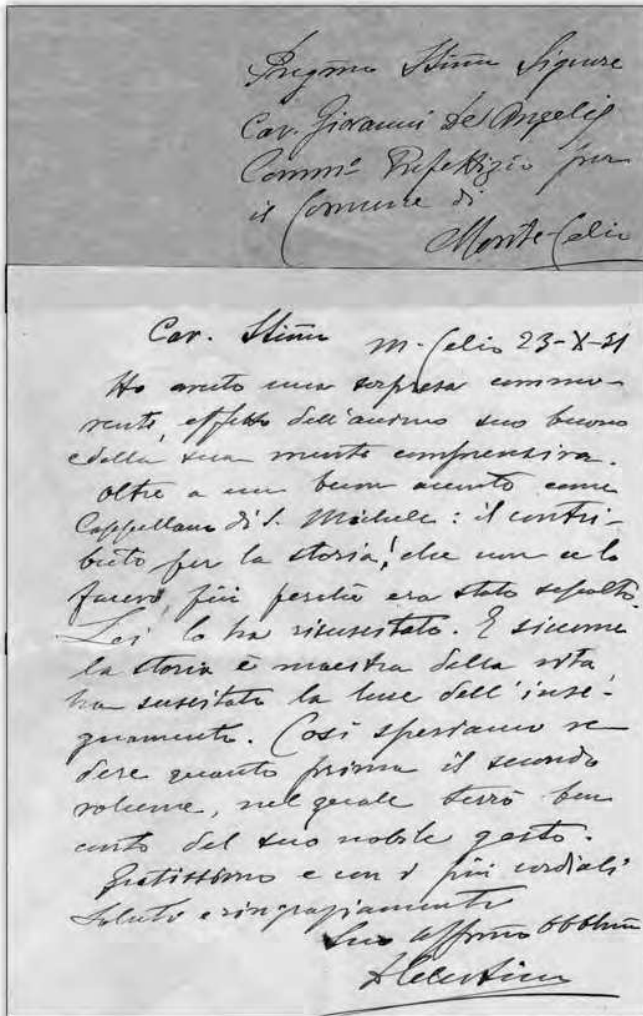 Pregmo Illmo Signore
Cav. Giovanni De Angelis
Commo Prefettizio per
il Comune di
Monte-Celio
Cav. Illmo M. Celio 23-X-31
Ho avuto una sorpresa commo-
vente, effetto dell'animo suo buono
e della sua mente comprensiva.
Oltre a un buon acconto come
Cappellano di S. Michele: il contri-
buto per la storia! che non ce lo
facevo, più perchè era stato sepolto.
Lei lo ha risuscitato. E siccome
la storia è maestra della vita
ha suscitato la luce dell'inse-
gnamento. Così speriamo ve
dere quanto prima il secondo
volume, nel quale terrò ben
conto del suo nobile gesto.
Gratissimo e con i più cordiali
saluti e ringraziamenti
Suo affmo obblmo
D Celestino